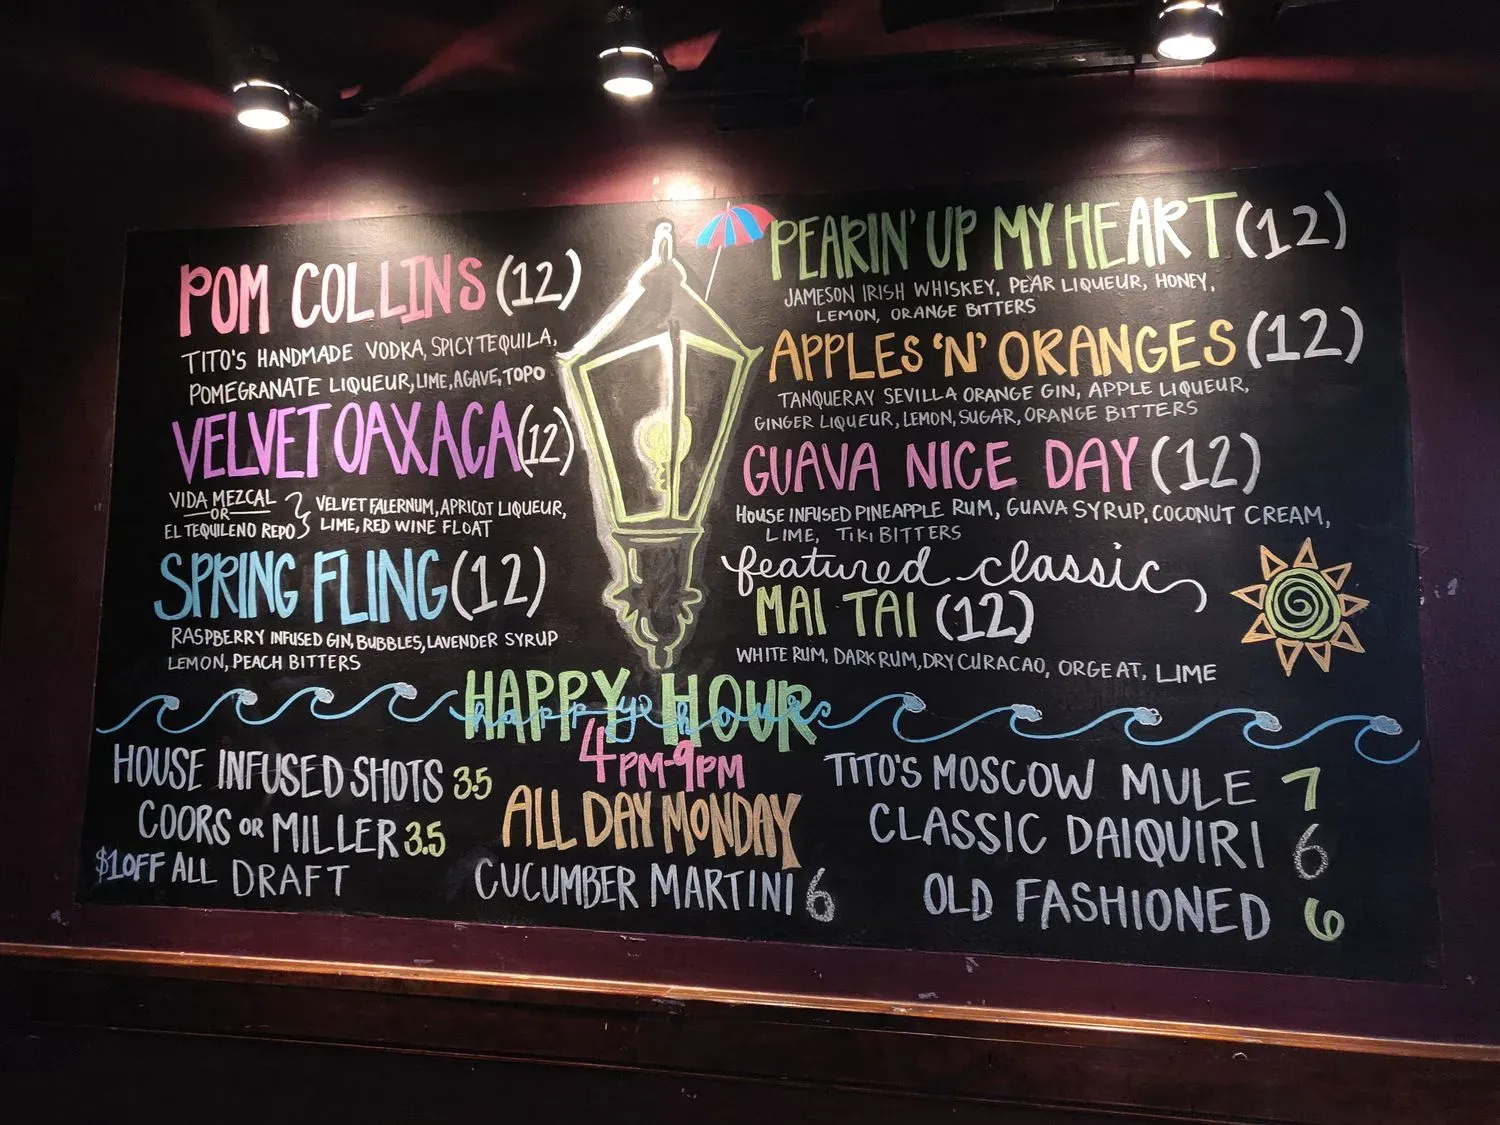 POM COLLINS (12)
TITO'S HANDMADE VODKA, SPICY TEQUILA,
POMEGRANATE LIQUEUR, LIME, AGAVE, TOPO
VELVET OAXACA (12)
VIDA MEZCAL
OR
EL TEQUILENO REPO
VELVET FALERNUM, APRICOT LIQUEUR,
LIME, RED WINE FLOAT
SPRING FLING (12)
RASPBERRY INFUSED GIN, BUBBLES, LAVENDER SYRUP
LEMON, PEACH BITTERS
PEARIN' UP MY HEART (12)
JAMESON IRISH WHISKEY, PEAR LIQUEUR, HONEY,
LEMON, ORANGE BITTERS
APPLES 'N' ORANGES (12)
TANQUERAY SEVILLA ORANGE GIN, APPLE LIQUEUR,
GINGER LIQUEUR, LEMON, SUGAR, ORANGE BITTERS
GUAVA NICE DAY (12)
HOUSE INFUSED PINEAPPLE RUM, GUAVA SYRUP, COCONUT CREAM,
LIME, TIKI BITTERS
featured classic
MAI TAI (12)
WHITE RUM, DARK RUM, DRY CURACAO, ORGEAT, LIME
HAPPY HOUR
happy hour
4PM-9PM
ALL DAY MONDAY
HOUSE INFUSED SHOTS 3.5
COORS OR MILLER 3.5
$1 OFF ALL DRAFT
CUCUMBER MARTINI 6
TITO'S MOSCOW MULE 7
CLASSIC DAIQUIRI 6
OLD FASHIONED 6